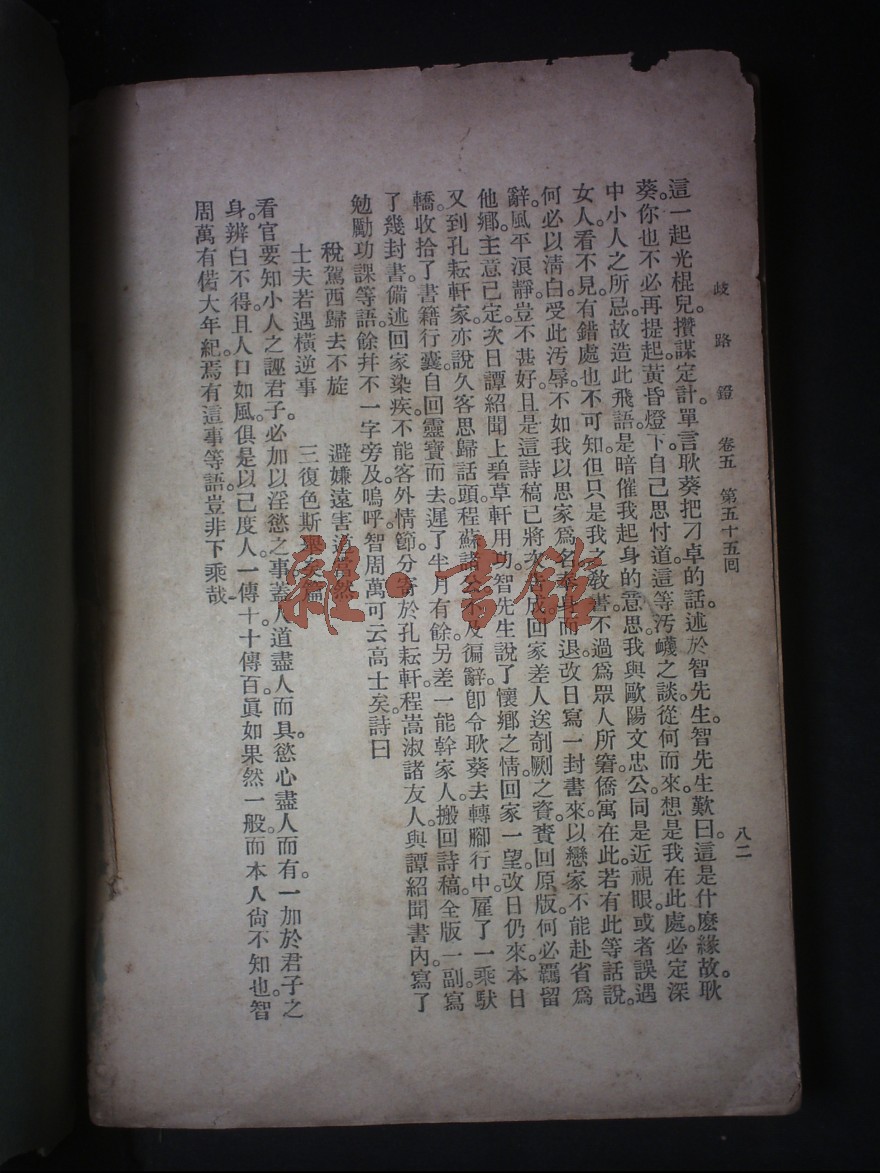 歧路鐙　卷五　第五十五回　八二
這一起光棍兒。攢謀定計。單言耿葵把刁卓的話。述於智先生。智先生歎曰。這是什麽緣故。耿
葵。你也不必再提起。黃昏燈下。自己思忖道。這等汚衊之談。從何而來。想是我在此處。必定深
中小人之所忌。故造此飛語。是暗催我起身的意思。我與歐陽文忠公。同是近視眼。或者誤遇
女人。看不見。有錯處也不可知。但只是我之敎書。不過爲眾人所窘。僑寓在此。若有此等話說。
何必以清白。受此汚辱。不如我以思家爲名。奉身而退。改日寫一封書來。以戀家不能赴省爲
辭。風平浪靜。豈不甚好。且是這詩稿已將次告成。回家差人送剞劂之資。賫回原版。何必羈留
他鄉。主意已定。次日譚紹聞上碧草軒用功。智先生說了懷鄉之情。回家一望。改日仍來。本日
又到孔耘軒家。亦說久客思歸話頭。程蘇諸公不及徧辭。卽令耿葵去轉腳行中。雇了一乘馱
轎。收拾了書籍行囊。自回靈寶而去。遲了半月有餘。另差一能幹家人。搬回詩稿。全版一副。寫
了幾封書。備述回家染疾。不能客外情節。分寄於孔耘軒程嵩淑諸友人。與譚紹聞書內。寫了
勉勵功課等語。餘幷不一字旁及。嗚呼。智周萬可云高士矣。詩曰
稅駕西歸去不旋　避嫌遠害道當然
士夫若遇橫逆事　三復色斯舉矣篇
看官要知小人之誣君子。必加以淫慾之事。蓋人道盡人而具。慾心盡人而有。一加於君子之
身。辨白不得。且人口如風。俱是以己度人。一傳十。十傳百。眞如果然一般。而本人尙不知也。智
周萬有偌大年紀。焉有這事等語。豈非下乘哉
雜·書館